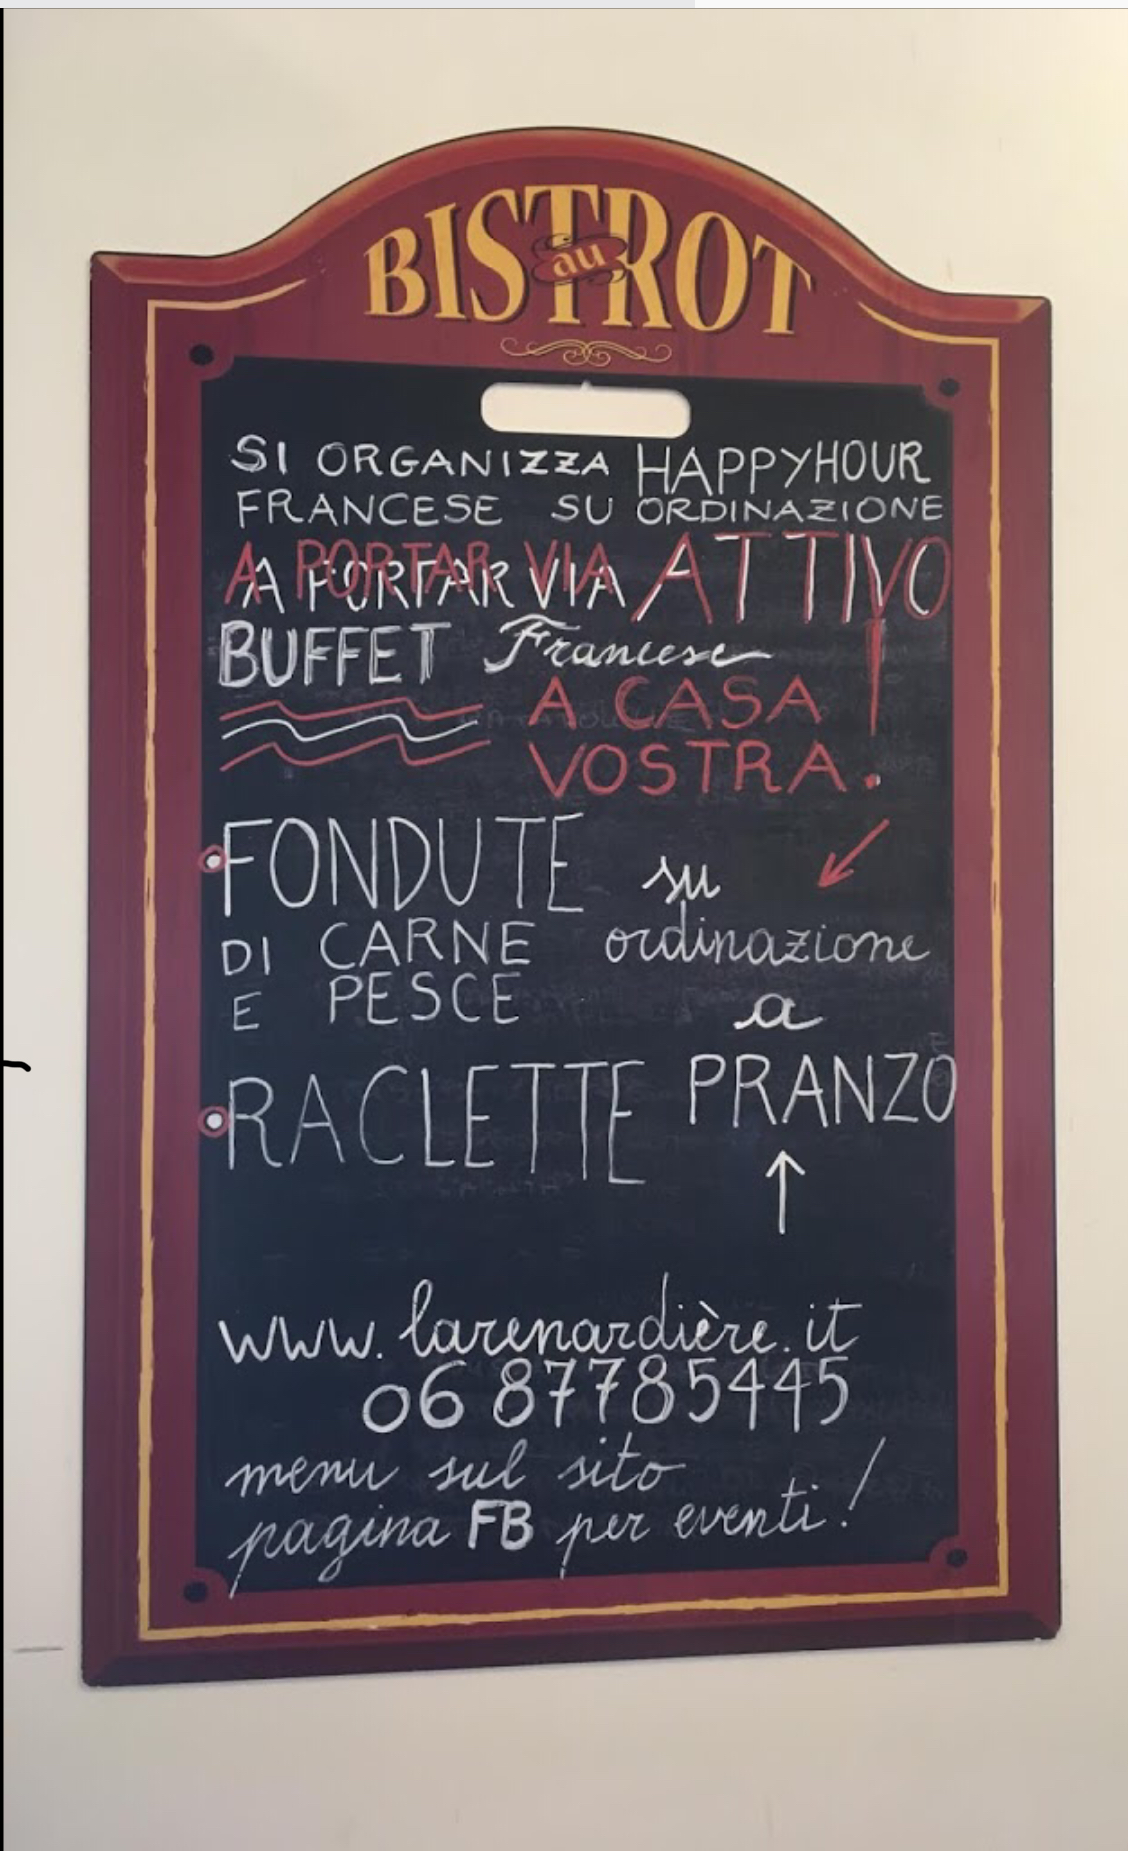 BISTROT
au
SI ORGANIZZA HAPPYHOUR
FRANCESE SU ORDINAZIONE
A PORTAR VIA ATTIVO
BUFFET Francese
A CASA
VOSTRA!
FONDUTE su
DI CARNE ordinazione
E PESCE a
RACLETTE PRANZO
www.larenardière.it
06 87785445
menu sul sito
pagina FB per eventi!